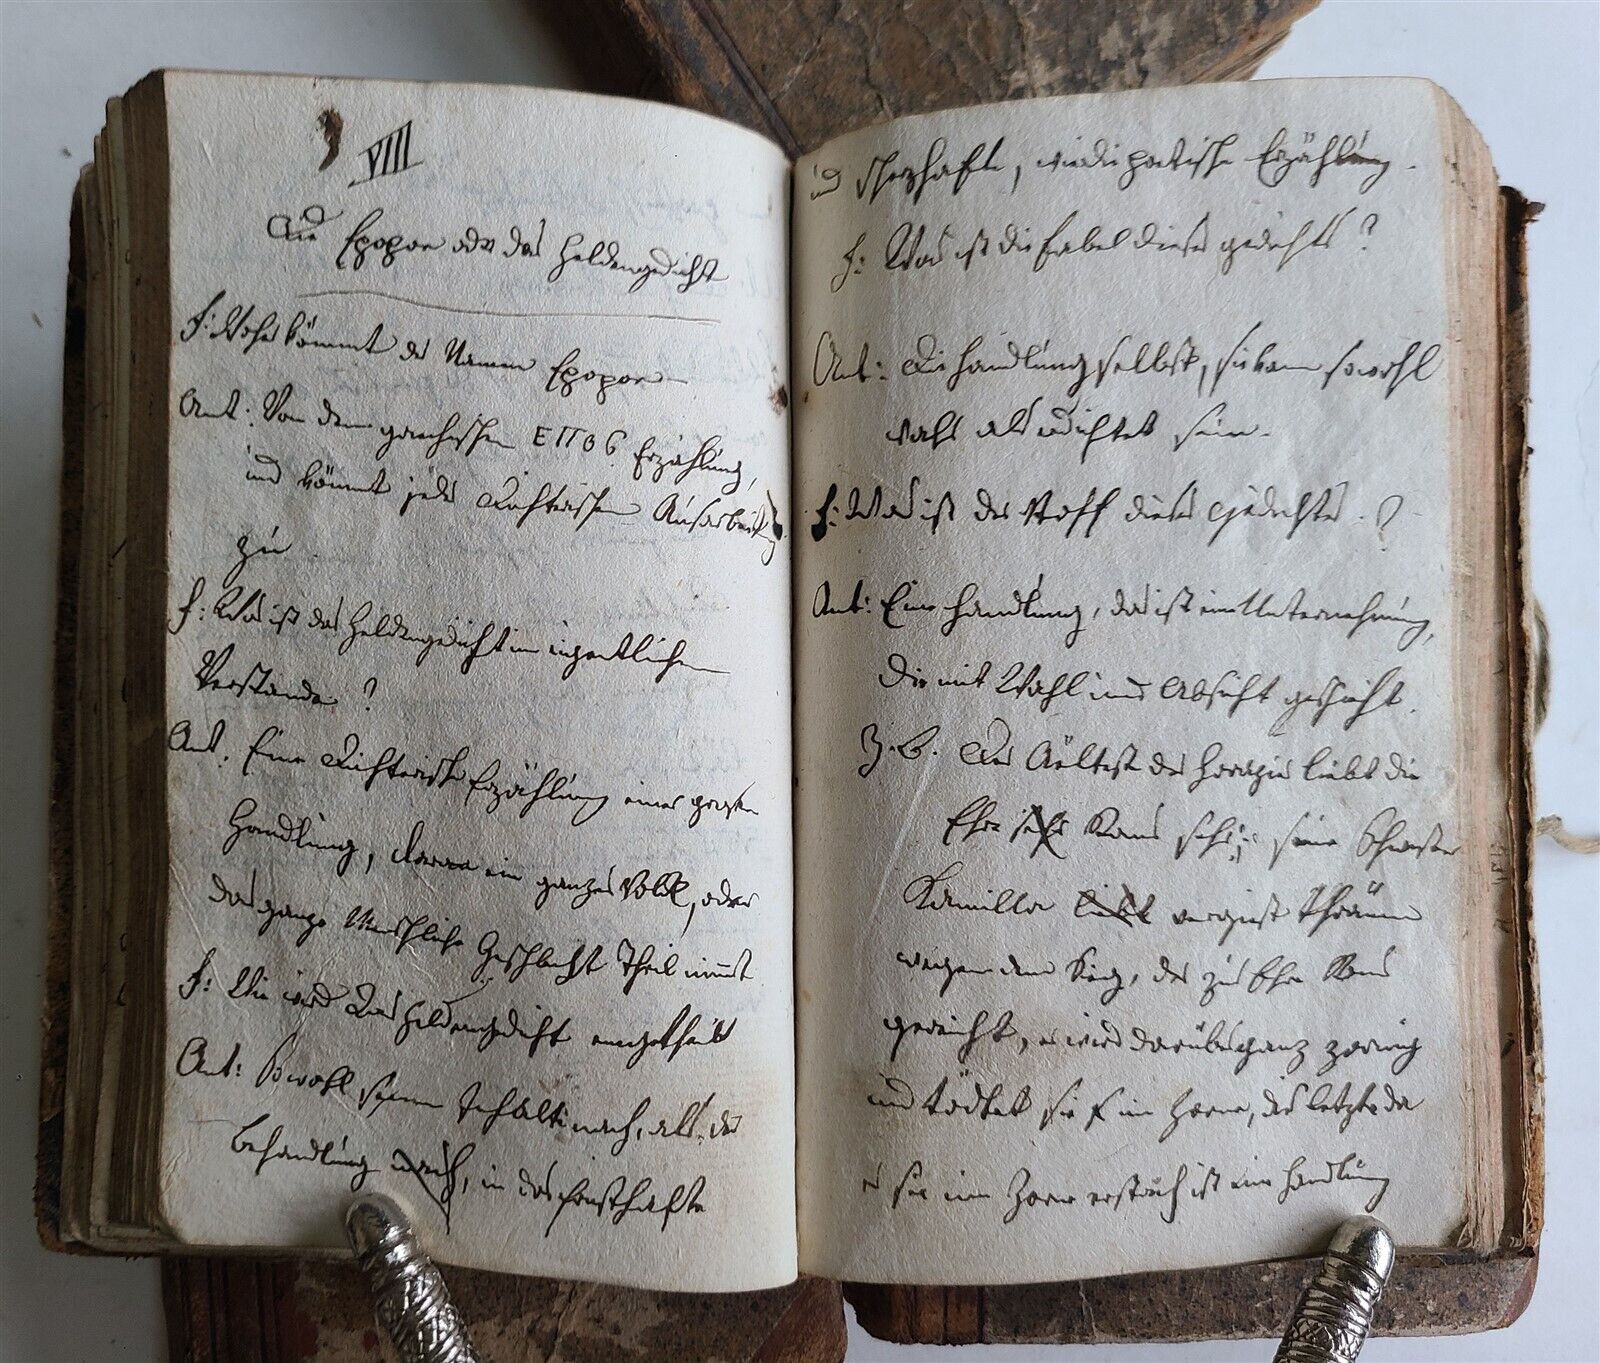 VIII
Die Epopoe oder das Heldengedicht
F: Woher kömmt der Namen Epopoe
Ant: Von dem griechischen ΕΠΟΣ Erzählung,
und kömmt jeder dichterischen Ausarbeitung
zu.
F: Was ist das Heldengedicht im eigentlichen
Verstande?
Ant: Eine dichterische Erzählung einer großen
Handlung, daran ein ganzes Volk, oder
das ganze Menschliche Geschlecht Theil nimmt
F: Wie wird das Heldengedicht eingetheilt
Ant: Sowohl seinem Inhalte nach, als der
Behandlung nach, in das ernsthafte
und scherzhafte, wie die poetische Erzählung.
F: Was ist die Fabel dieses gedichts?
Ant: Die Handlung selbst, sie kann sowohl
wahr als erdichtet sein.
F: Was ist der Stoff dieses Gedichtes?
Ant: Eine Handlung, das ist eine Unternehmung,
die mit Wahl und Absicht geschieht.
Z. B. Der Aelteste der Horazier liebt die
Ehre sehr Roms sehr; seine Schwester
Kamilla liebt vergießt Thränen
wegen dem Sieg, der zur Ehre Roms
gereicht, er wird darüber ganz zornig
und tödtet sie im Zorne, das letzte da
er sie im Zorne erstach ist eine Handlung